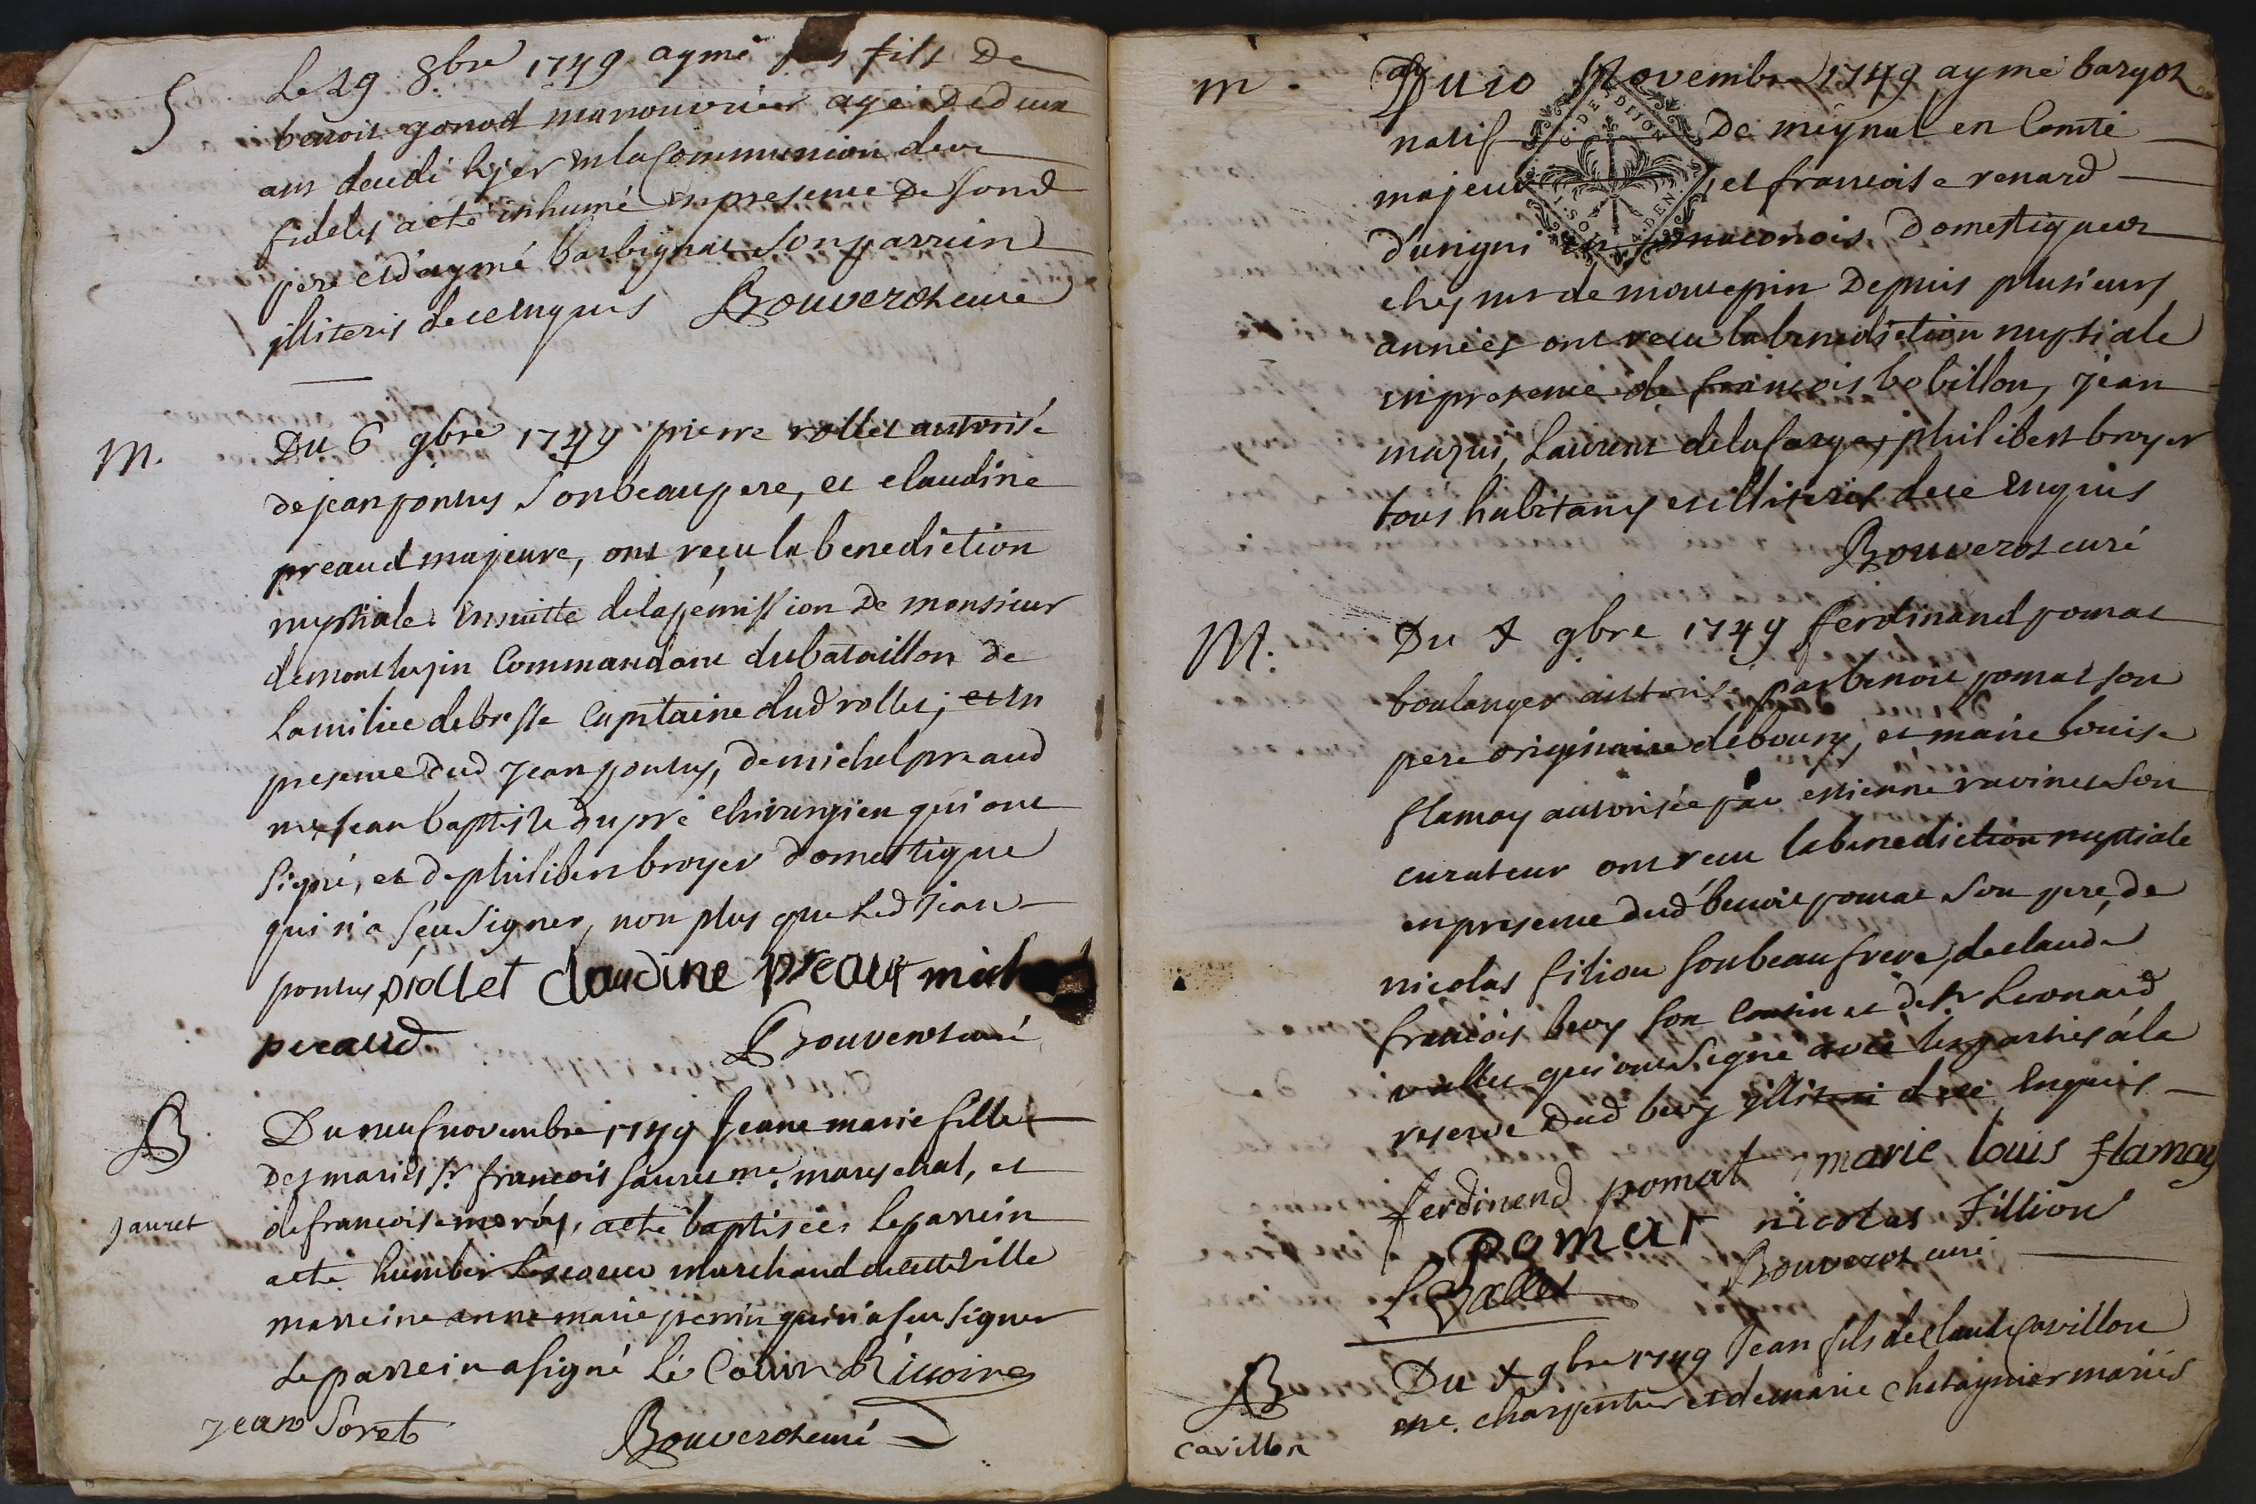 S
Le 29 8bre 1749 aymé fils De
benoit gonod manouvrier agé De deux
ans decedé hyer en la Communion deux
fideles a eté inhumé en presence De Sond
pere et d'aymé barbignat Son parrein
illiteris de ce enquis Bouverot curé
M.
Du 6 9bre 1749 pierre rollet autorisé
de jean ponthus Son beaupere, et claudine
preaud majeure, ont reçu la benediction
nuptiale ensuitte de la permission De monsieur
de montlepin Commandant du bataillon de
la milice de bresse Capitaine dud rollet, et en
presence dud jean ponthus, de michel preaud
me jean baptiste dupré chirurgien qui ont
Signé, et de philibert broyer domestique
qui n'a Seu Signer, non plus que Led Jean
ponthus p rollet claudine preaut
preaud Bouverot curé
B
jauret
Du neuf novembre 1749 Jeane marie fille
Des mariés Sr françois jauret me mareschal, et
de françoise a eté baptiseé, Le parrein
a eté humbert marchand de cette ville
marreine anne marie perrin qui n'a seu signer
Le parrein a Signé
jean Soret Bouverot curé
m.
Du 10 Novembre 1749 aymé bargot
natif De meynal en Comté
majeur et françoise renard
d'urigni en maconois, Domestiques
chez mr de monlepin Depuis plusieurs
années ont recu la benediction nuptiale
en presence de françois bobillon, jean
Laurent delafarge, philibert broyer
tous habitans et illiteres de ce enquis
Bouverot curé
M.
Du X 9bre 1749 ferdinand pomat
boulanger autorisé par benoit pomat son
pere originaire de bourg, et marie louise
flamay autorisée par estienne ravinet Son
curateur ont recu la benediction nuptiale
en presence dud benoit pomat Son pere, de
nicolas filion Son beaufrere, de claude
françois bevy Son Cousin et de Sr Leonard
vallet qui ont Signé avec les parties à la
reserve Dud bevy illiteré de ce Enquis
ferdinend pomat marie louis flamay
pomat nicolas Fillion
L Vallet Bouverot curé
B
cavillon
Du X 9bre 1749 Jean fils de Claude Cavillon
me. charpentier et de marie Chataignier mariés